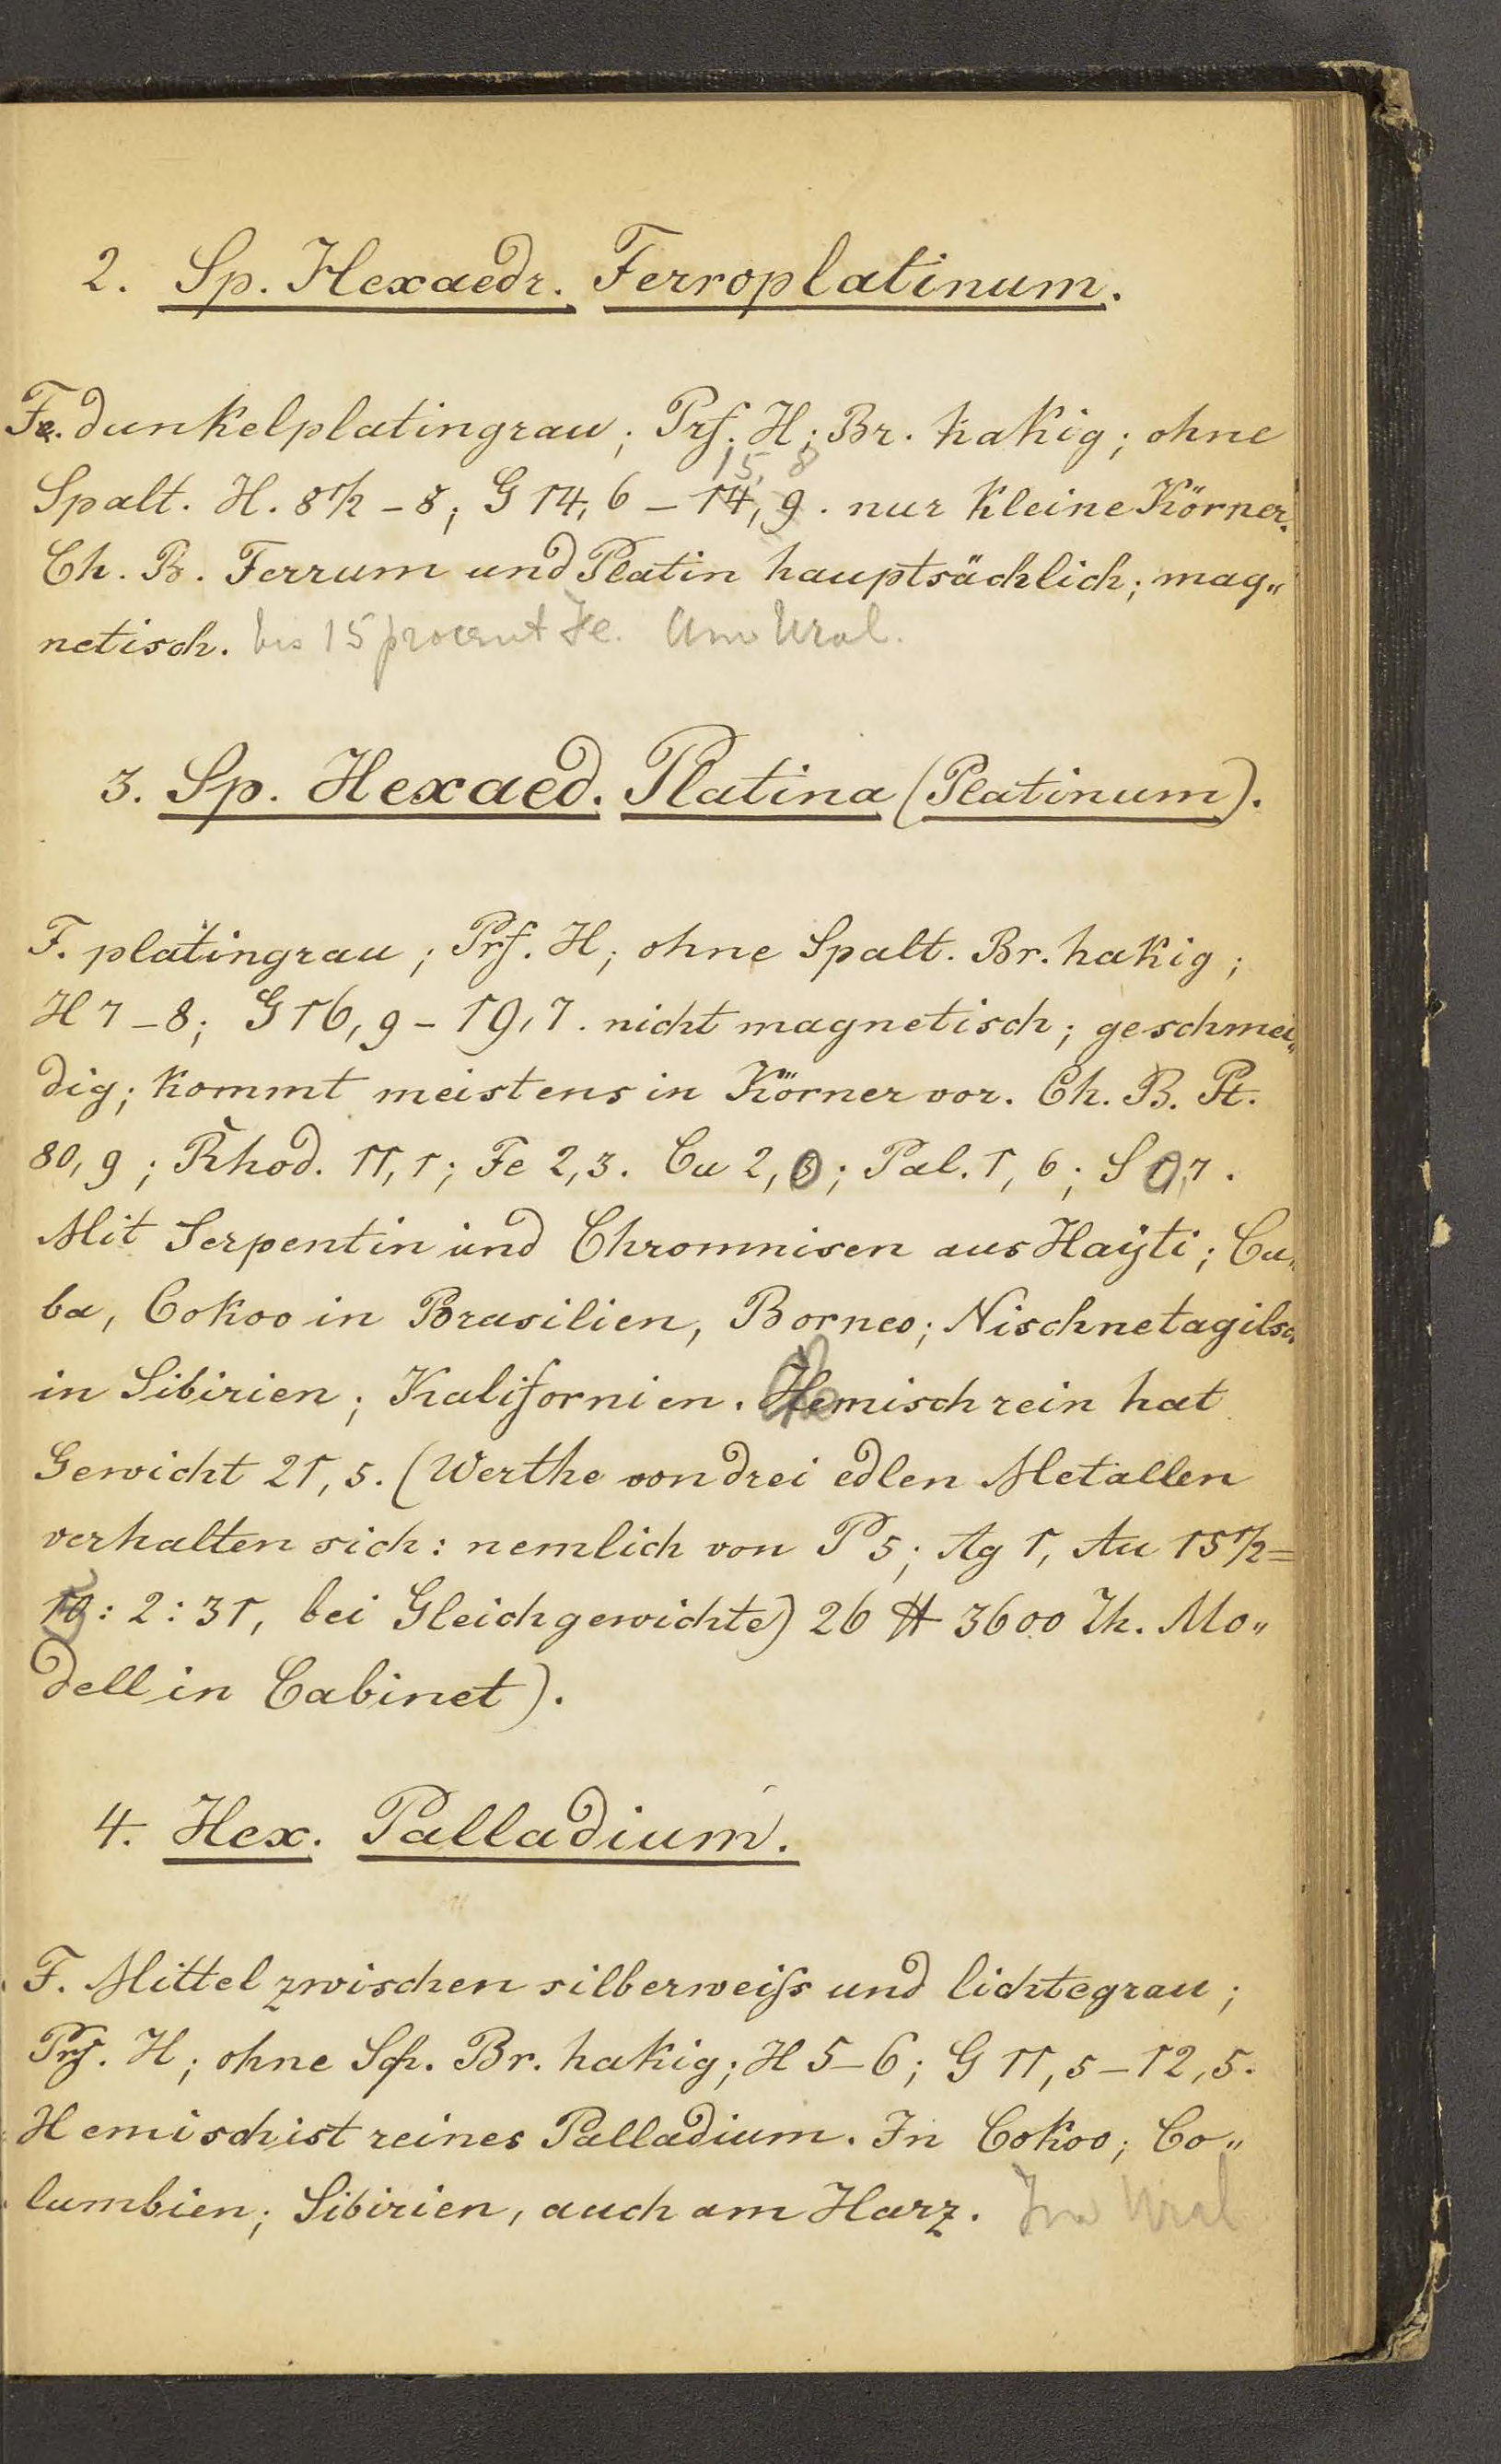 2. Sp. Hexaedr. Ferroplatinum.
Fe. dunkelplatingrau; Prf. H; Br. hakig; ohne
15, 8
Spalt. H. 8 1/2 – 8; G 14,6 – 14,9. nur kleine Körner.
Ch. B. Ferrum und Platin hauptsächlich; mag„
netisch. bis 15 procent Fe. Am Ural.
3. Sp. Hexaed. Platina (Platinum).
F. platingrau; Prf. H; ohne Spalt. Br. hakig;
H 7 – 8; G 16,9 – 19,7. nicht magnetisch; geschmei„
dig; kommt meistens in Körner vor. Ch. B. Pt.
80,9; Rhod. 11,1; Fe 2,3. Cu 2,0; Pal. 1,6; S 0,7.
Mit Serpentin und Chromnisen aus Haÿti; Cu„
ba, Cokoo in Brasilien, Borneo; Nischnetagilsc
in Sibirien; Kalifornien. Chemisch rein hat
Gewicht 21,5. (Werthe von drei edlen Metallen
verhalten sich: nemlich von P 5; Ag 1, Au 15 1/2 =
10 : 2 : 31, bei Gleichgewichte) 26 ℔ 3600 Th. Mo„
dell in Cabinet).
4. Hex. Palladium.
F. Mittel zwischen silberweiſs und lichtegrau;
Prf. H; ohne Sp. Br. hakig; H 5–6; G 11,5 – 12,5.
Hemisch ist reines Palladium. In Cokoo; Co„
lumbien; Sibirien, auch am Harz. Im Ural